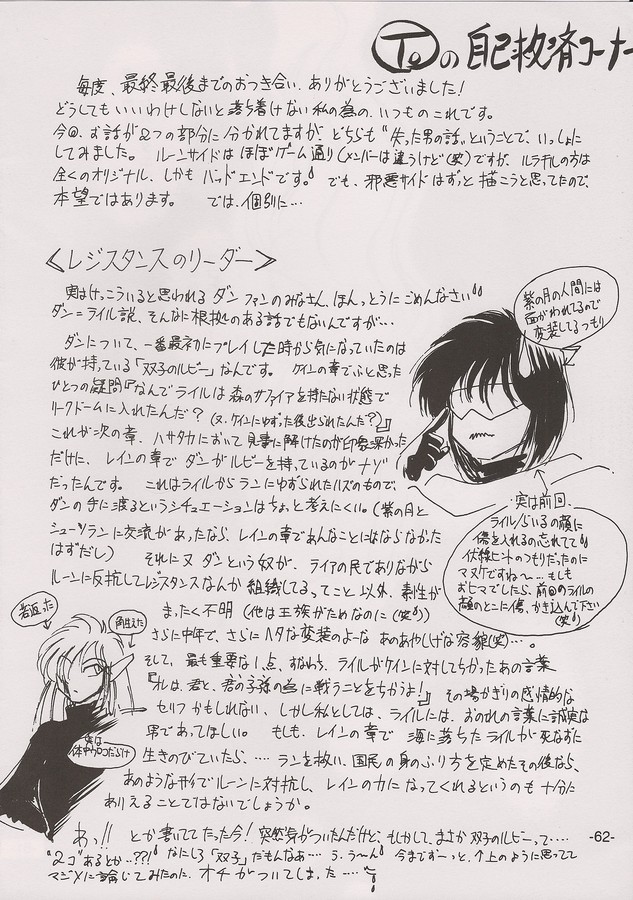 Toの自己救済コーナー
毎度、最終最後までのおつき合い、ありがとうございました!
どうしてもいいわけしないと落ち着けない私の為の、いつものこれです。
今回、お話が2つの部分に分かれてますが、どちらも"失った男の話"ということで、いっしょに
してみました。ルーンサイドはほぼゲーム通り(メンバーは違うけど(笑))ですが、ルラチルの方は
全くのオリジナル、しかもバッドエンドです。でも、邪悪サイドはずっと描こうと思ってたので、
本望ではあります。では、個別に…
《レジスタンスのリーダー》
実はけっこういると思われるダンファンのみなさん、ほんっとうにごめんなさい
ダン=ライル説、そんなに根拠のある話でもないんですが…
ダンについて、一番最初にプレイした時から気になっていたのは
彼が持っている「双子のルビー」なんです。ケインの章でふと思った
ひとつの疑問『なんでライルは森のサファイアを持たない状態で
リークドームに入れたんだ?(又、ケインにゆずった後出られたんだ?)』
これが次の章、ハサタカにおいて見事に解けたのが印象深かった
だけに、レインの章でダンがルビーを持っているのがナゾ
だったんです。これはライルからランにゆずられたハズのもので、
ダンの手に渡るというシチュエーションはちょっと考えにくい。(紫の月と
シューソランに交流があったなら、レインの章であんなことにはならなかった
はずだし)それに又ダンという奴が、ライアの民でありながら
ルーンに反抗してレジスタンスなんか組織してるってこと以外、素性が
まったく不明(他は王族がためなのに(笑))
さらに中年で、さらにヘタな変装のよーなあのあやしげな容貌(笑)…。
そして、最も重要な1点、すなわち、ライルがケインに対してちかったあの言葉
『オレは、君と、君の子孫の為に戦うことをちかうよ!』その場かぎりの感情的な
セリフかもしれない、しかし私としては、ライルには、おのれの言葉に誠実な
男であってほしい。もし、レインの章で海に落ちたライルが死なずに
生きのびていたら、…ランを救い、国民の身のふり方を定めたその後なら、
あのようなサイドでルーンに対抗し、レインの力になってくれるというのも十分に
ありえることではないでしょうか。
あっ!!とか書いててたった今!突然気がついたんだけど、もしかして、まさか双子のルビーって……
"2コ"あるとか..??!なにしろ「双子」だもんなあ…う、う〜ん 今までずーっと、↑上のように思ってて
マジメに論じてみたのに、オチがついてしまった…
紫の月の人間には
面がわれてるので
変装してるつもり
実は前回、
ライル/らいるの顔に
傷を入れるの忘れてて
伏線ヒントのつもりだったのに
マヌケですね〜…もしも
おヒマでしたら、前回のライルの
顔のとこに傷、かき込んで下さい
(笑)
若返った
角生えた
実は
体中ウロコだらけ
-62-